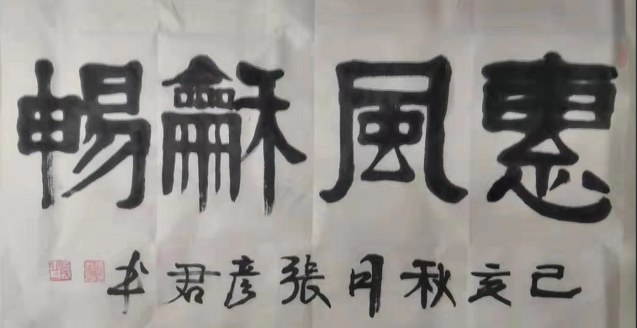 惠風龢暢
己亥秋月張彦君书